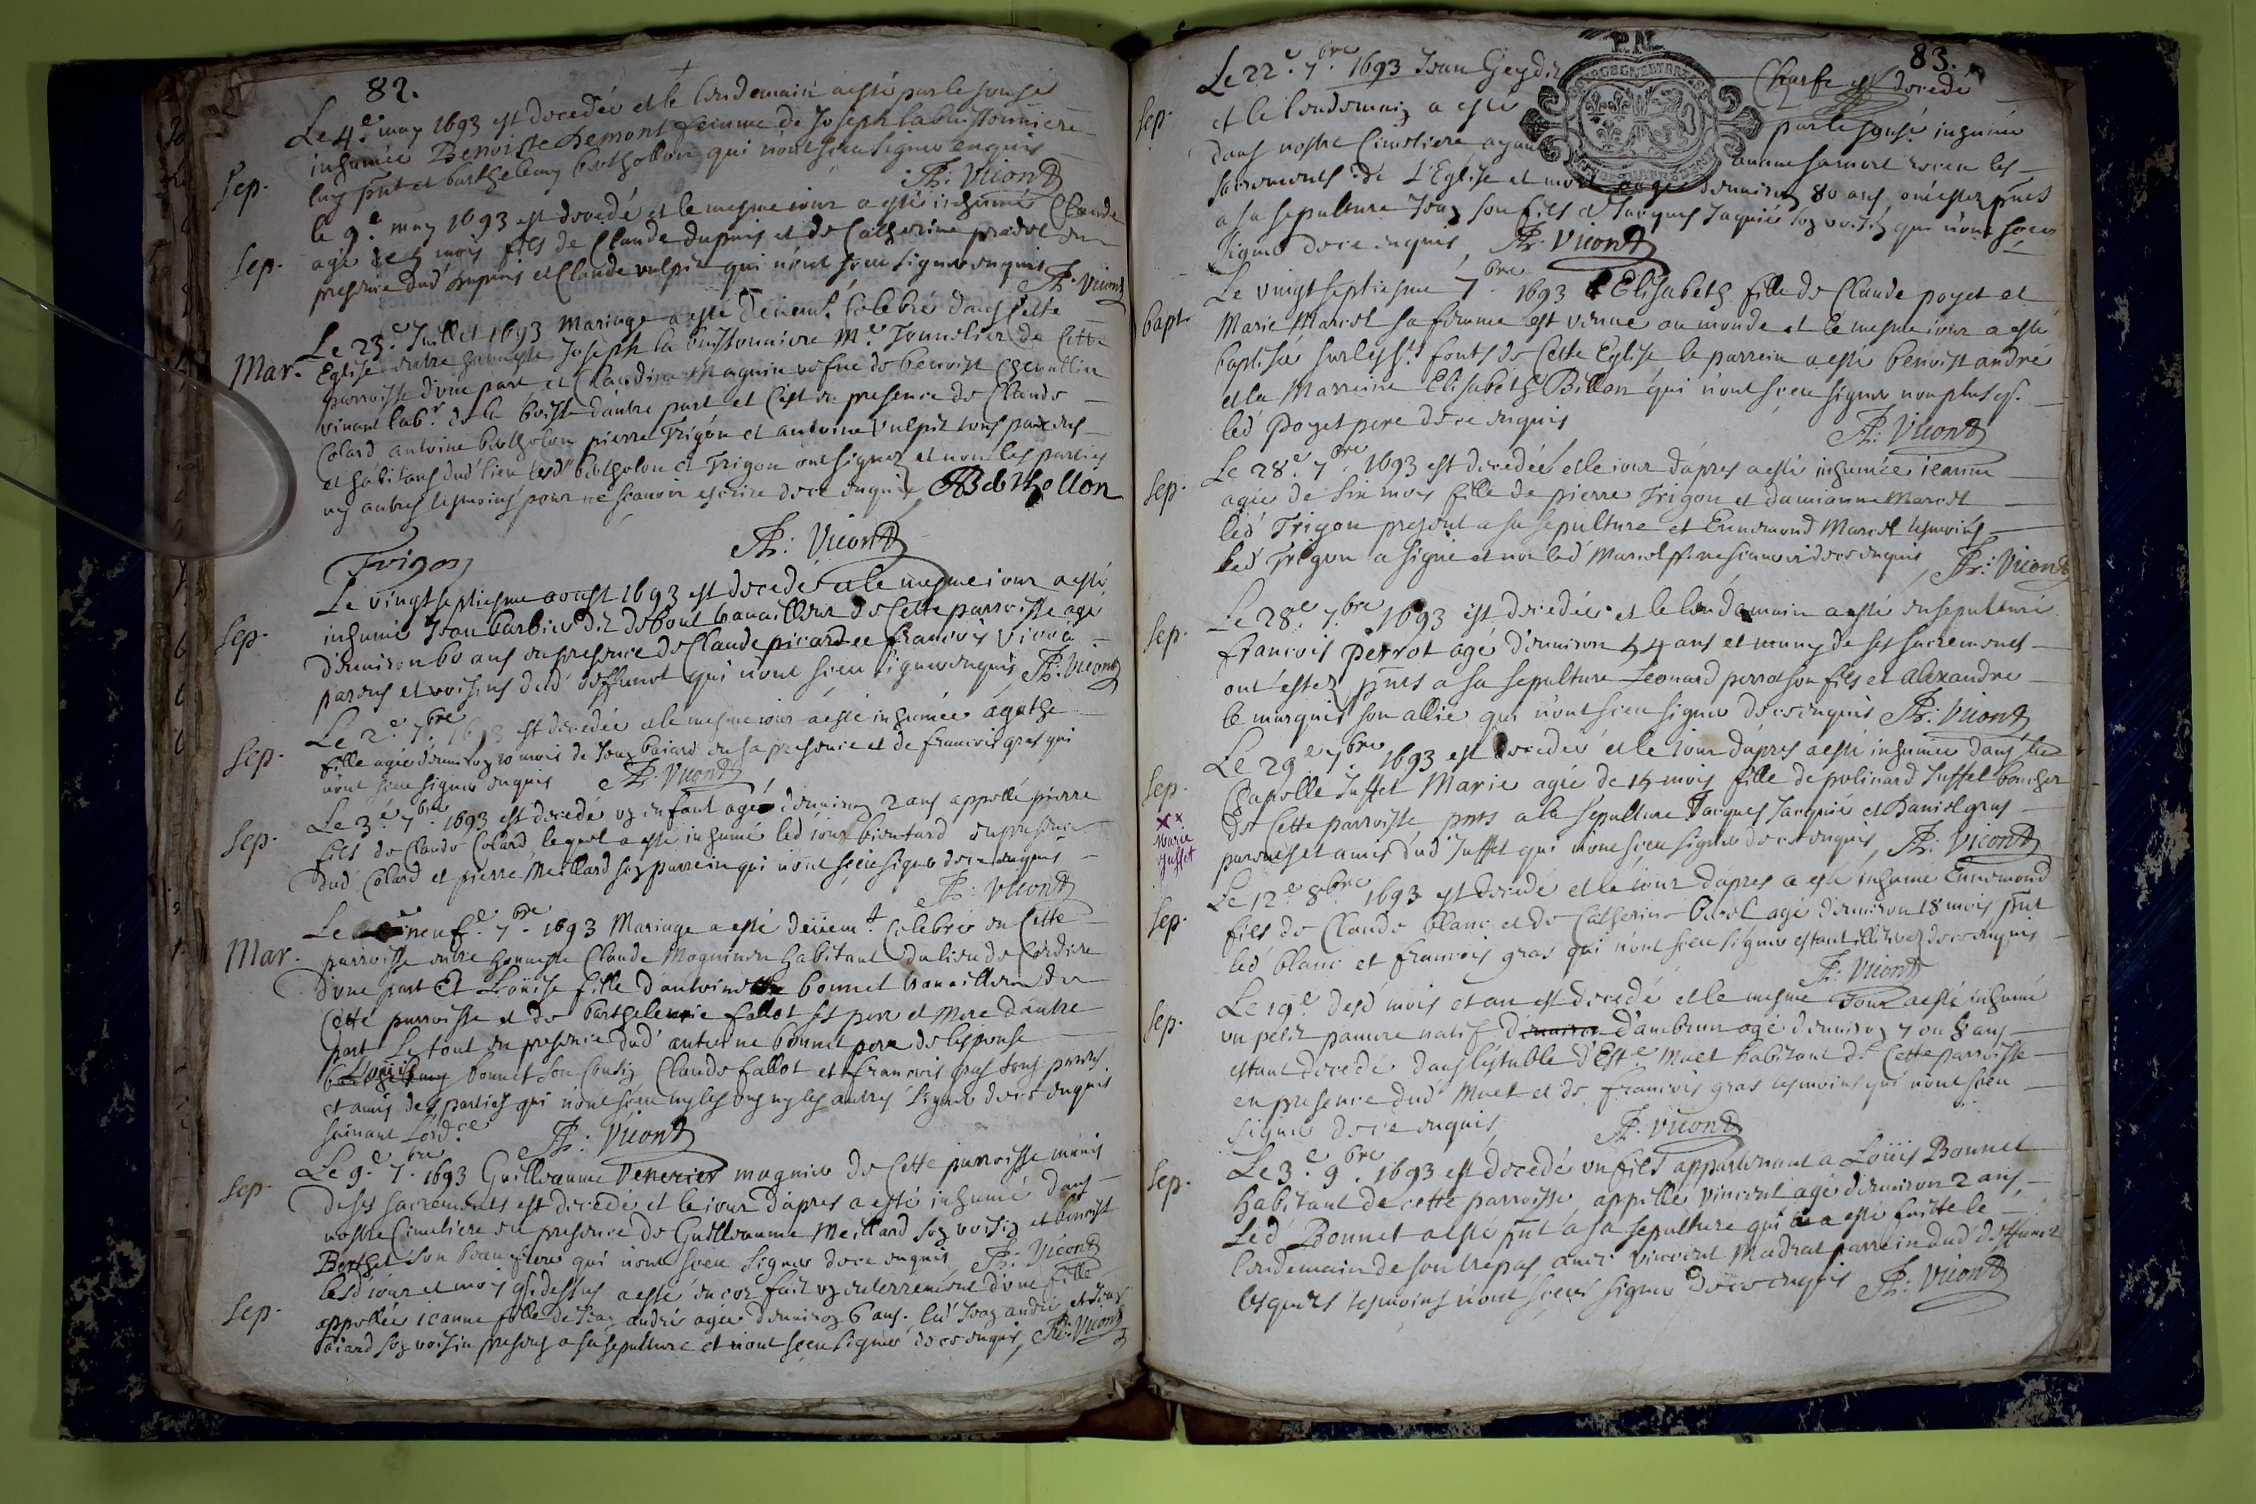 82.
Le 4e. may 1693 est decedée et le lendemain a esté par le sousé
Sep. inhumée Benoiste Demont femme de Joseph la buissonniere
luy pnt et barthelemy berthollon qui n'ont sceu signer enquis
Ph: Vicond
le 9e. may 1693 est decedé et le mesme iour a esté inhumé Claude
Sep. agé de 5 mois fils de Claude dupuis et de Catherine pradel en
presence dud' dupuis et Claude vulpit qui n'ont sceu signer enquis
Ph: Vicond
Le 23e. Juillet 1693 Mariage a esté deüemt. celebré dans cette
Mar. Eglise entre honneste Joseph la buissonniere Me. Tonnelier de Cette
parroisse d'vne part et Claudine Maguin vefue de benoist
viuant labr. de la boisse d'autre part et c'est en presence de Claude
Colard antoine bertholon pierre Trigon et antoine vulpit tous parens
et habitans dud' lieu lesd' bertholon et Trigon ont signez et non les parties
ny autres tesmoins pour ne sçauoir escrire de ce enquis Bethollon
Trigon
Ph: Vicond
Le vingt septiesme aoust 1693 est decedé et le mesme iour a esté
Sep. inhumé Jean barbier dit debout trauailleur de Cette parroisse agé
d'enuiron 60 ans en presence de Claude picard et francois
parens et voisins dud' deffunct qui n'ont sceu signer enquis Ph: Vicond
Le 2e. 7bre 1693 est decedée et le mesme iour a esté inhumée agathe
Sep. fille agée d'enuiron 10 mois de Jean baiard en sa presence et de francois gras qui
n'ont sceu signer enquis Ph: Vicond
Le 3e. 7bre 1693 est decedé vn enfant agé d'enuiron 2 ans appellé pierre
Sep. fils de Claude Colard lequel a esté inhumé led' iour bien tard en presence
dud' Colard et pierre Meillard son parrein qui n'ont sceu signer de ce enquis
Ph: Vicond
Le neufe. 7bre. 1693 Mariage a esté deüemt. Celebré en Cette
Mar. parroisse entre honneste Claude Maguin habitant du lieu de Cordieu
d'vne part Et Loüise fille d'antoine bonnet trauailleur de
Cette parroisse et de barthelemie fallot ses pere et Mere d'autre
part Le tout en presence dud' antoine bonnet pere de l'espouse
Louis bonnet son Cousin Claude fallot et francois gras tous parens
et amis des parties qui n'ont sceu ny les vns ny les autres signer de ce enquis
suiuant l'ordce
Ph: Vicond
Le 9e. 7bre. 1693 Guilleaume Venerier magnier de Cette parroisse munis
Sep. de ses sacrements est decedé et le iour d'apres a esté inhumé dans
nostre Cimetiere en presence de Guilleaume Meillard son voisin et benoist
Berthet son beaufrere qui n'ont sceu signer de ce enquis Ph: Vicond
lesd' iour et mois que dessus a esté encor fait vn enterrement d'vne fille
Sep. appellée ieanne fille de Jean andré agée d'enuiron 6 ans. led' Jean andré et Jean
baiard son voisin presens a sa sepulture et n'ont sceu signer de ce enquis Ph: Vicond
83.
Le 22e. 7bre. 1693 Jean Geydit Charfe est decedé
Sep. et le lendemain a esté par le sousé inhumé
dans nostre Cimetiere ayant auant sa mort receu les
sacrements de L'Eglise et mort agé d'enuiron 80 ans, ont estez pnts
a sa sepulture Jean son fils et Jacques Jaquié son voisin qui n'ont sceu
signer de ce enquis, Ph: Vicond
Le vingt septiesme 7bre 1693 Elisabeth fille de Claude poyet et
bapt. Marie Marcel sa femme est venue au monde et le mesme iour a esté
baptisée sur les sts. fonts de Cette Eglise le parrein a esté benoist andré
et la Marreine Elisabeth Billon qui n'ont sceu signer non plus q.
led' Poyet pere de ce enquis
Ph: Vicond
Le 28e. 7bre 1693 est decedée et le iour d'apres a esté inhumée ieanne
Sep. agée de six mois fille de pierre Trigon et damianne Marcel
led' Trigon present a sa sepulture et Ennemond Marcel tesmoins
led' Trigon a signé et non led' Marcel pr. ne sçauoir de ce enquis, Ph: Vicond
Le 28e. 7.bre 1693 est decedée et le lendemain a esté ensepulturé
Sep. francois Perrot agé d'enuiron 44 ans et muny de ses sacrements
ont estez pnts a sa sepulture Leonard perrot son fils et alexandre
le marquis son allié qui n'ont sceu signer de ce enquis Ph: Vicond
Le 29e 7bre 1693 est decedée et le iour d'apres a esté inhumée dans la
Sep. Chapelle Juffet Marie agée de 15 mois fille de polinard Juffet boucher
xx
Marie
Juffet
de Cette parroisse pnts a la sepulture Jacques Jacquié et Daniel gras
parens et amis dud' Juffet qui n'ont sceu signer de ce enquis, Ph: Vicond
Le 12e 8bre. 1693 est decedé et le iour d'apres a esté inhumé Ennemond
Sep. fils de Claude blanc et de Catherine agé d'enuiron 18 mois pnt
led' blanc et francois gras qui n'ont sceu signer estant illiterez de ce enquis
Ph: Vicond
Le 19e desd' mois et an est decedé et le mesme Jour a esté inhumé
Sep. vn petit pauure natif d'enuiron d'ambrun agé d'enuiron 7 ou 8 ans
estant decedé dans l'estable d'Este Muet habitant de Cette parroisse
en presence dud' Muet et de francois gras tesmoins qui n'ont sceu
signer de ce enquis,
Ph: Vicond
Le 3e. 9bre. 1693 est decedé vn fils appartenant a Loüis Bonnet
Sep. habitant de cette parroisse appellé vincent agé d'enuiron 2 ans,
Led' Bonnet a esté pnt a sa sepulture qui a esté faicte le
lendemain de son trepas auec vincent Madrat parrein dud' deffunct
lesquels tesmoins n'ont sceu signer de ce enquis Ph: Vicond